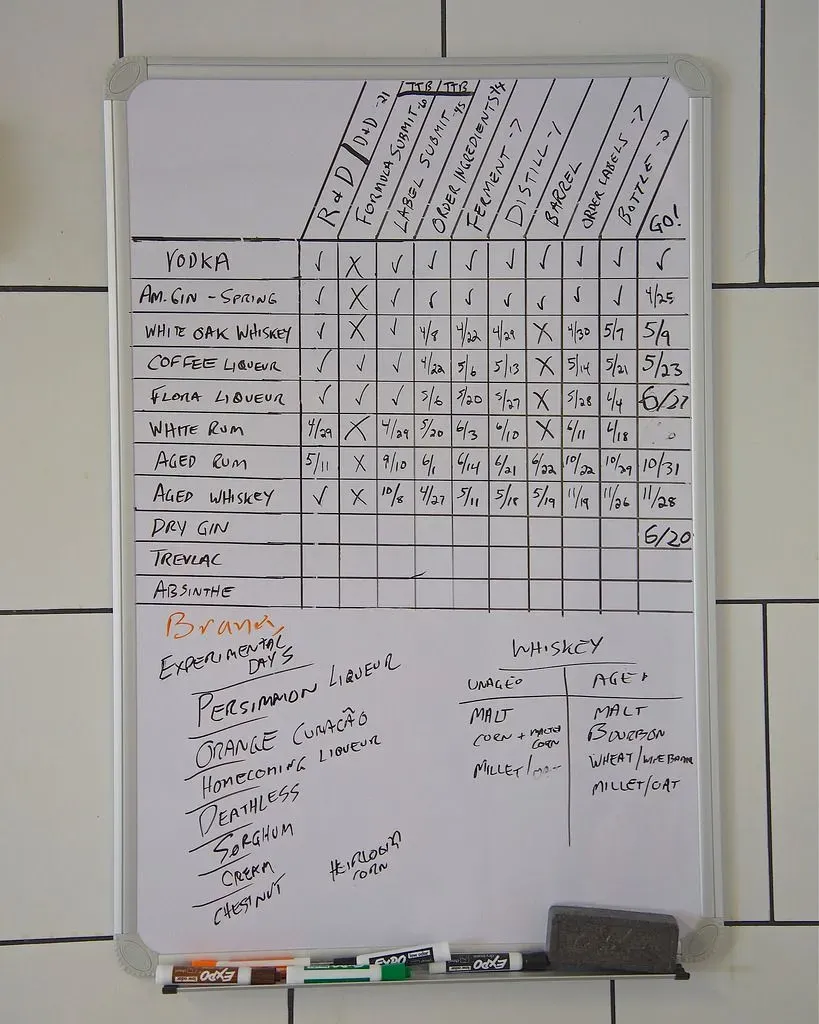 TTB TTB
R & D / D+D -21
FORMULA SUBMIT
LABEL SUBMIT -45
ORDER INGREDIENTS
FERMENT -7
DISTILL -1
BARREL
ORDER LABELS -7
BOTTLE -2
GO!
VODKA ✓ X ✓ ✓ ✓ ✓ ✓ ✓ ✓ ✓
AM. GIN - SPRING ✓ X ✓ ✓ ✓ ✓ ✓ ✓ ✓ 4/25
WHITE OAK WHISKEY ✓ X ✓ 4/8 4/22 4/29 X 4/30 5/7 5/9
COFFEE LIQUEUR ✓ ✓ ✓ 4/22 5/6 5/13 X 5/14 5/21 5/23
FLORA LIQUEUR ✓ ✓ ✓ 5/6 5/20 5/27 X 5/28 6/4 6/27
WHITE RUM 4/29 X 4/29 5/20 6/3 6/10 X 6/11 6/18
AGED RUM 5/11 X 9/10 6/1 6/14 6/21 6/22 10/22 10/29 10/31
AGED WHISKEY ✓ X 10/8 4/27 5/11 5/18 5/19 11/19 11/26 11/28
DRY GIN 6/20
TREVLAC
ABSINTHE
EXPERIMENTAL
DAYS
PERSIMMON LIQUEUR
ORANGE CURAÇÃO
HOMECOMING LIQUEUR
DEATHLESS
SORGHUM
CREAM
CHESTNUT
HEIRLOOM
CORN
WHISKEY
UNAGED AGED
MALT MALT
CORN + MALTED
CORN
BOURBON
MILLET/
WHEAT/
MILLET/OAT
EXPO
EXPO
EXPO